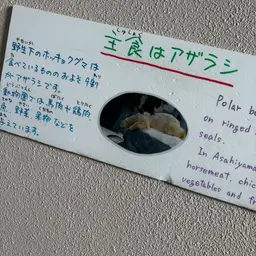 主食はアザラシ
野生下のホッキョクグマは
食べているもののおよそ9割
がアザラシです。
動物園では馬肉や鶏肉
野菜、果物などを
与えています。
Polar be
on ringed
seals.
In Asahiyama
horsemeat, chic
vegetables and fr